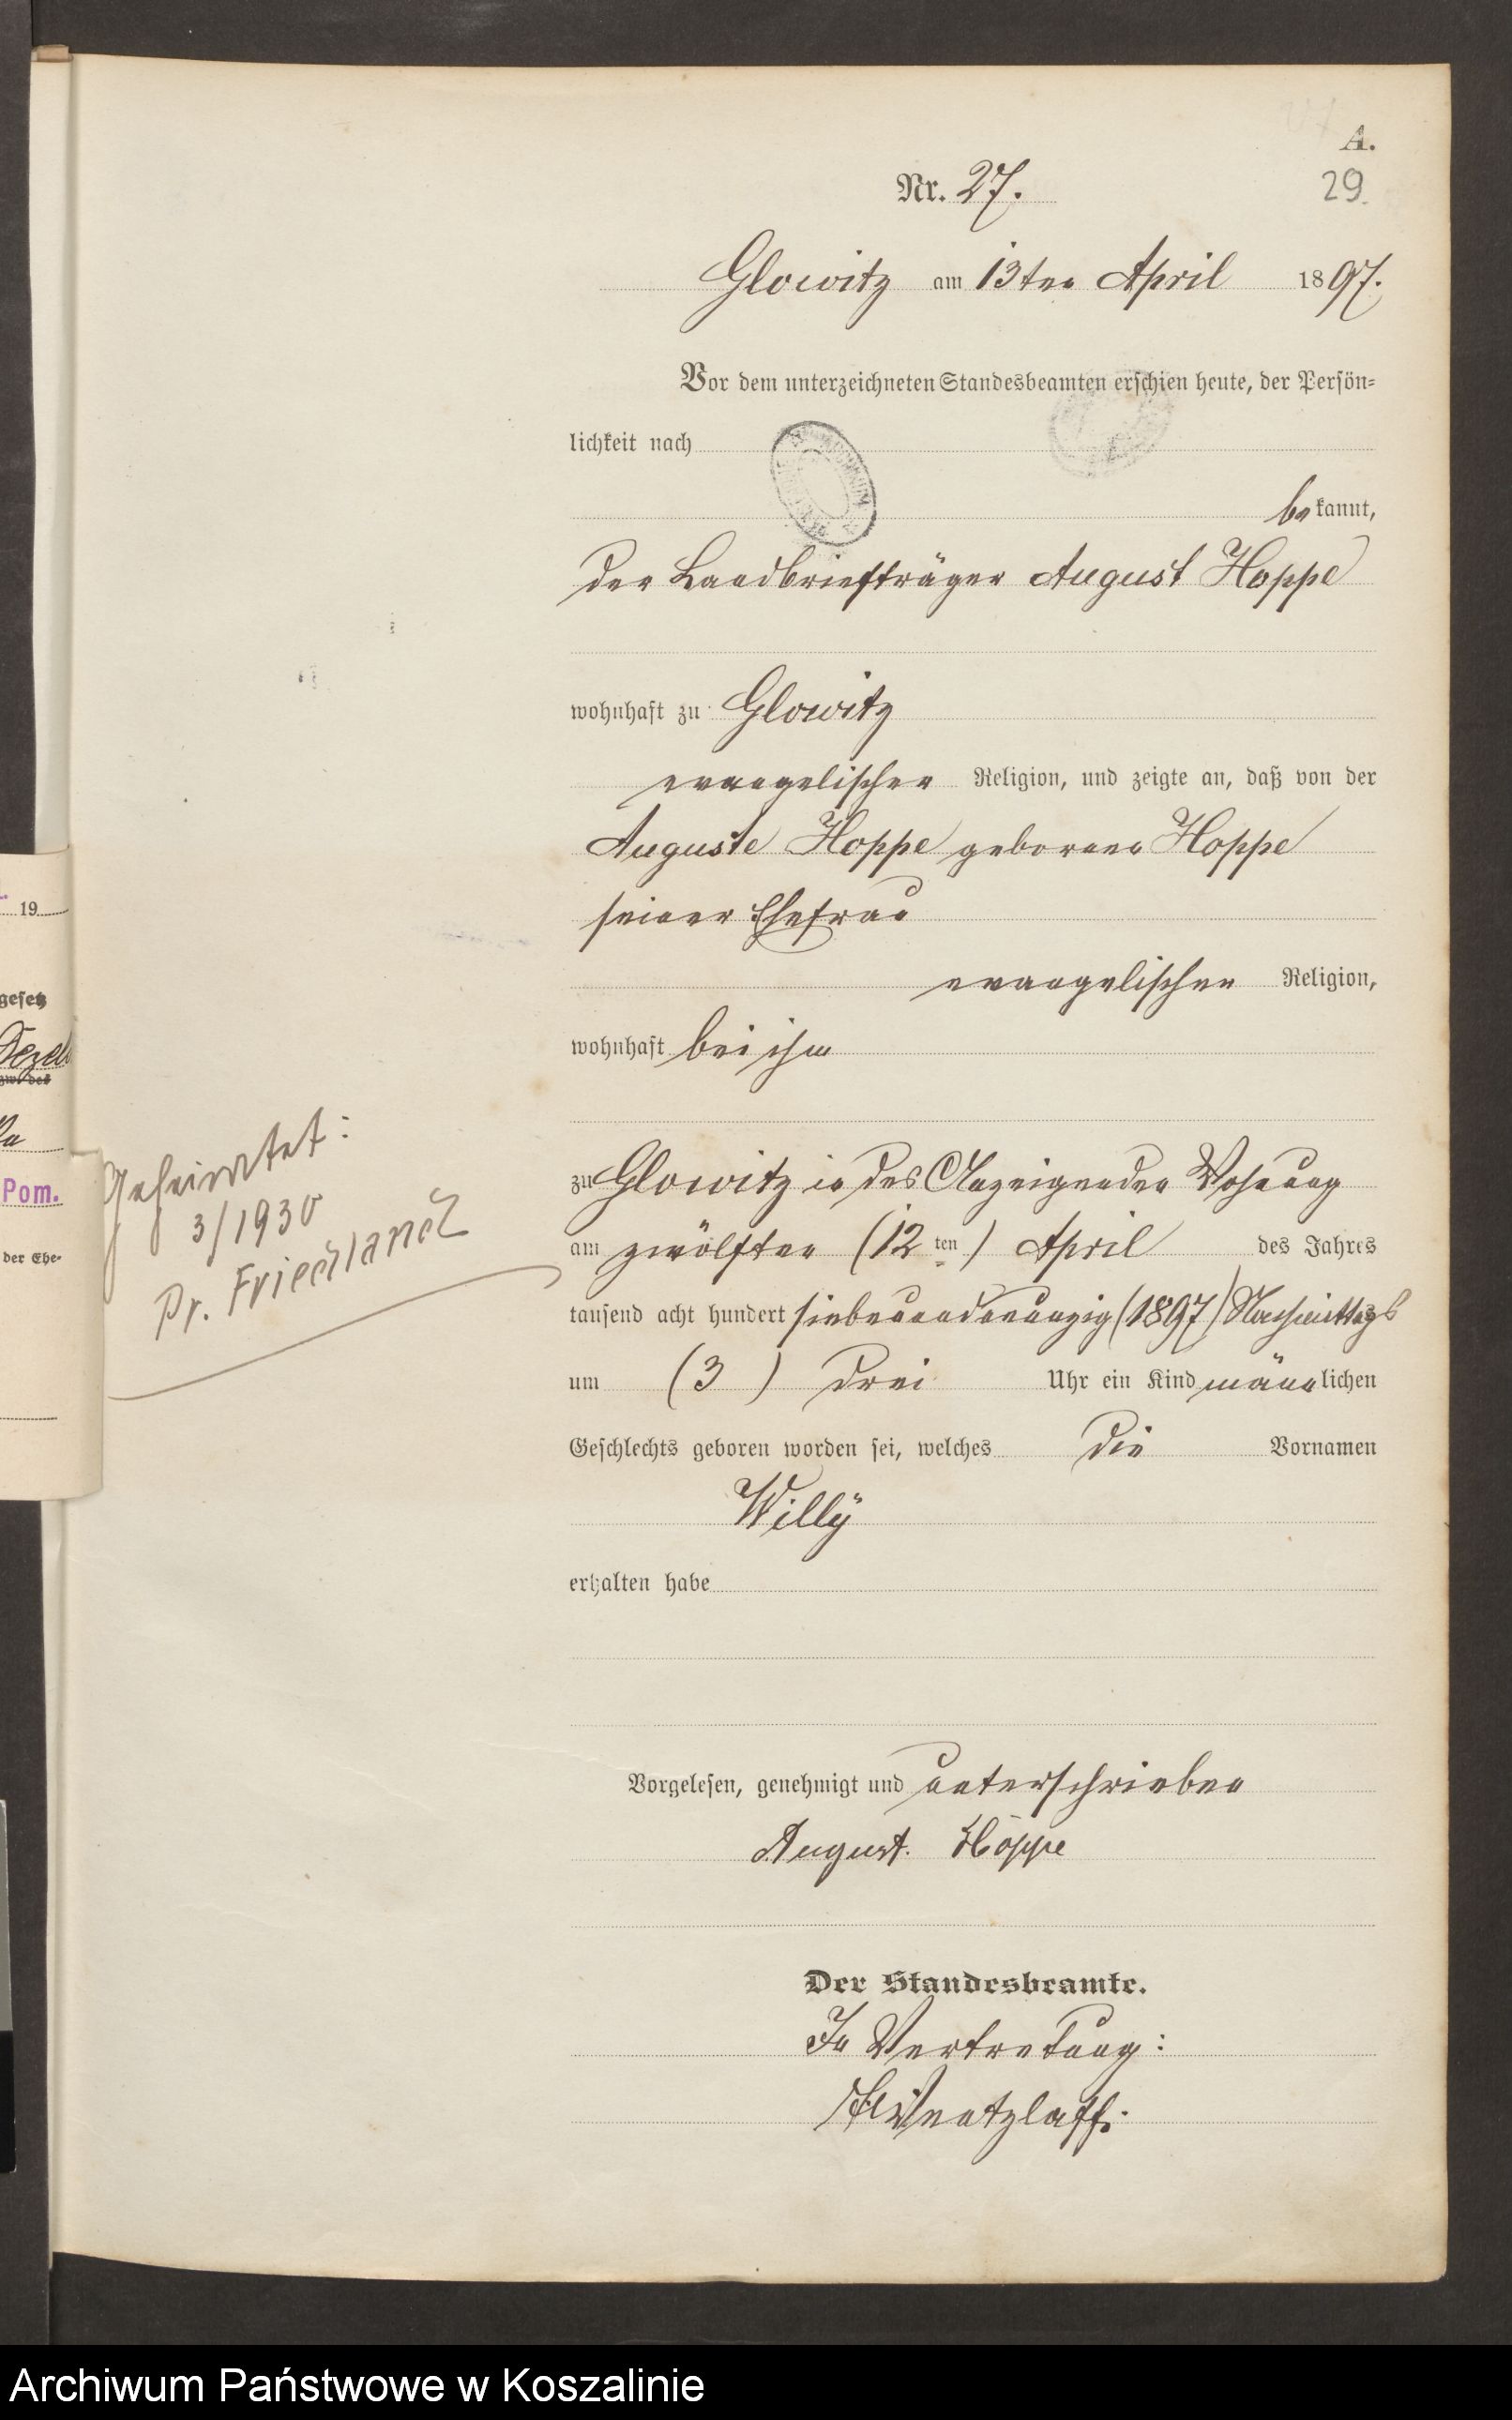 A.
Nr. 27.
29.
Glowitz am 13ten April 1897.
Vor dem unterzeichneten Standesbeamten erschien heute, der Persön=
lichkeit nach
bekannt,
der Landbriefträger August Hoppe
wohnhaft zu Glowitz
evangelischen Religion, und zeigte an, daß von der
Auguste Hoppe geborene Hoppe
seiner Ehefrau
evangelischen Religion,
wohnhaft bei ihm
zu Glowitz in des Anzeigenden Wohnung
am zwölften (12ten) April des Jahres
tausend acht hundert siebenundneunzig (1897) Nachmittags
um (3) drei Uhr ein Kind männlichen
Geschlechts geboren worden sei, welches die Vornamen
Willÿ
erhalten habe
Vorgelesen, genehmigt und unterschrieben
August. Hoppe
Der Standesbeamte.
In Vertretung:
Wentzlaff.
Geheiratet:
3/1930
Pr. Friedland
19
gesetz
Pom.
der Ehe-
Archiwum Państwowe w Koszalinie